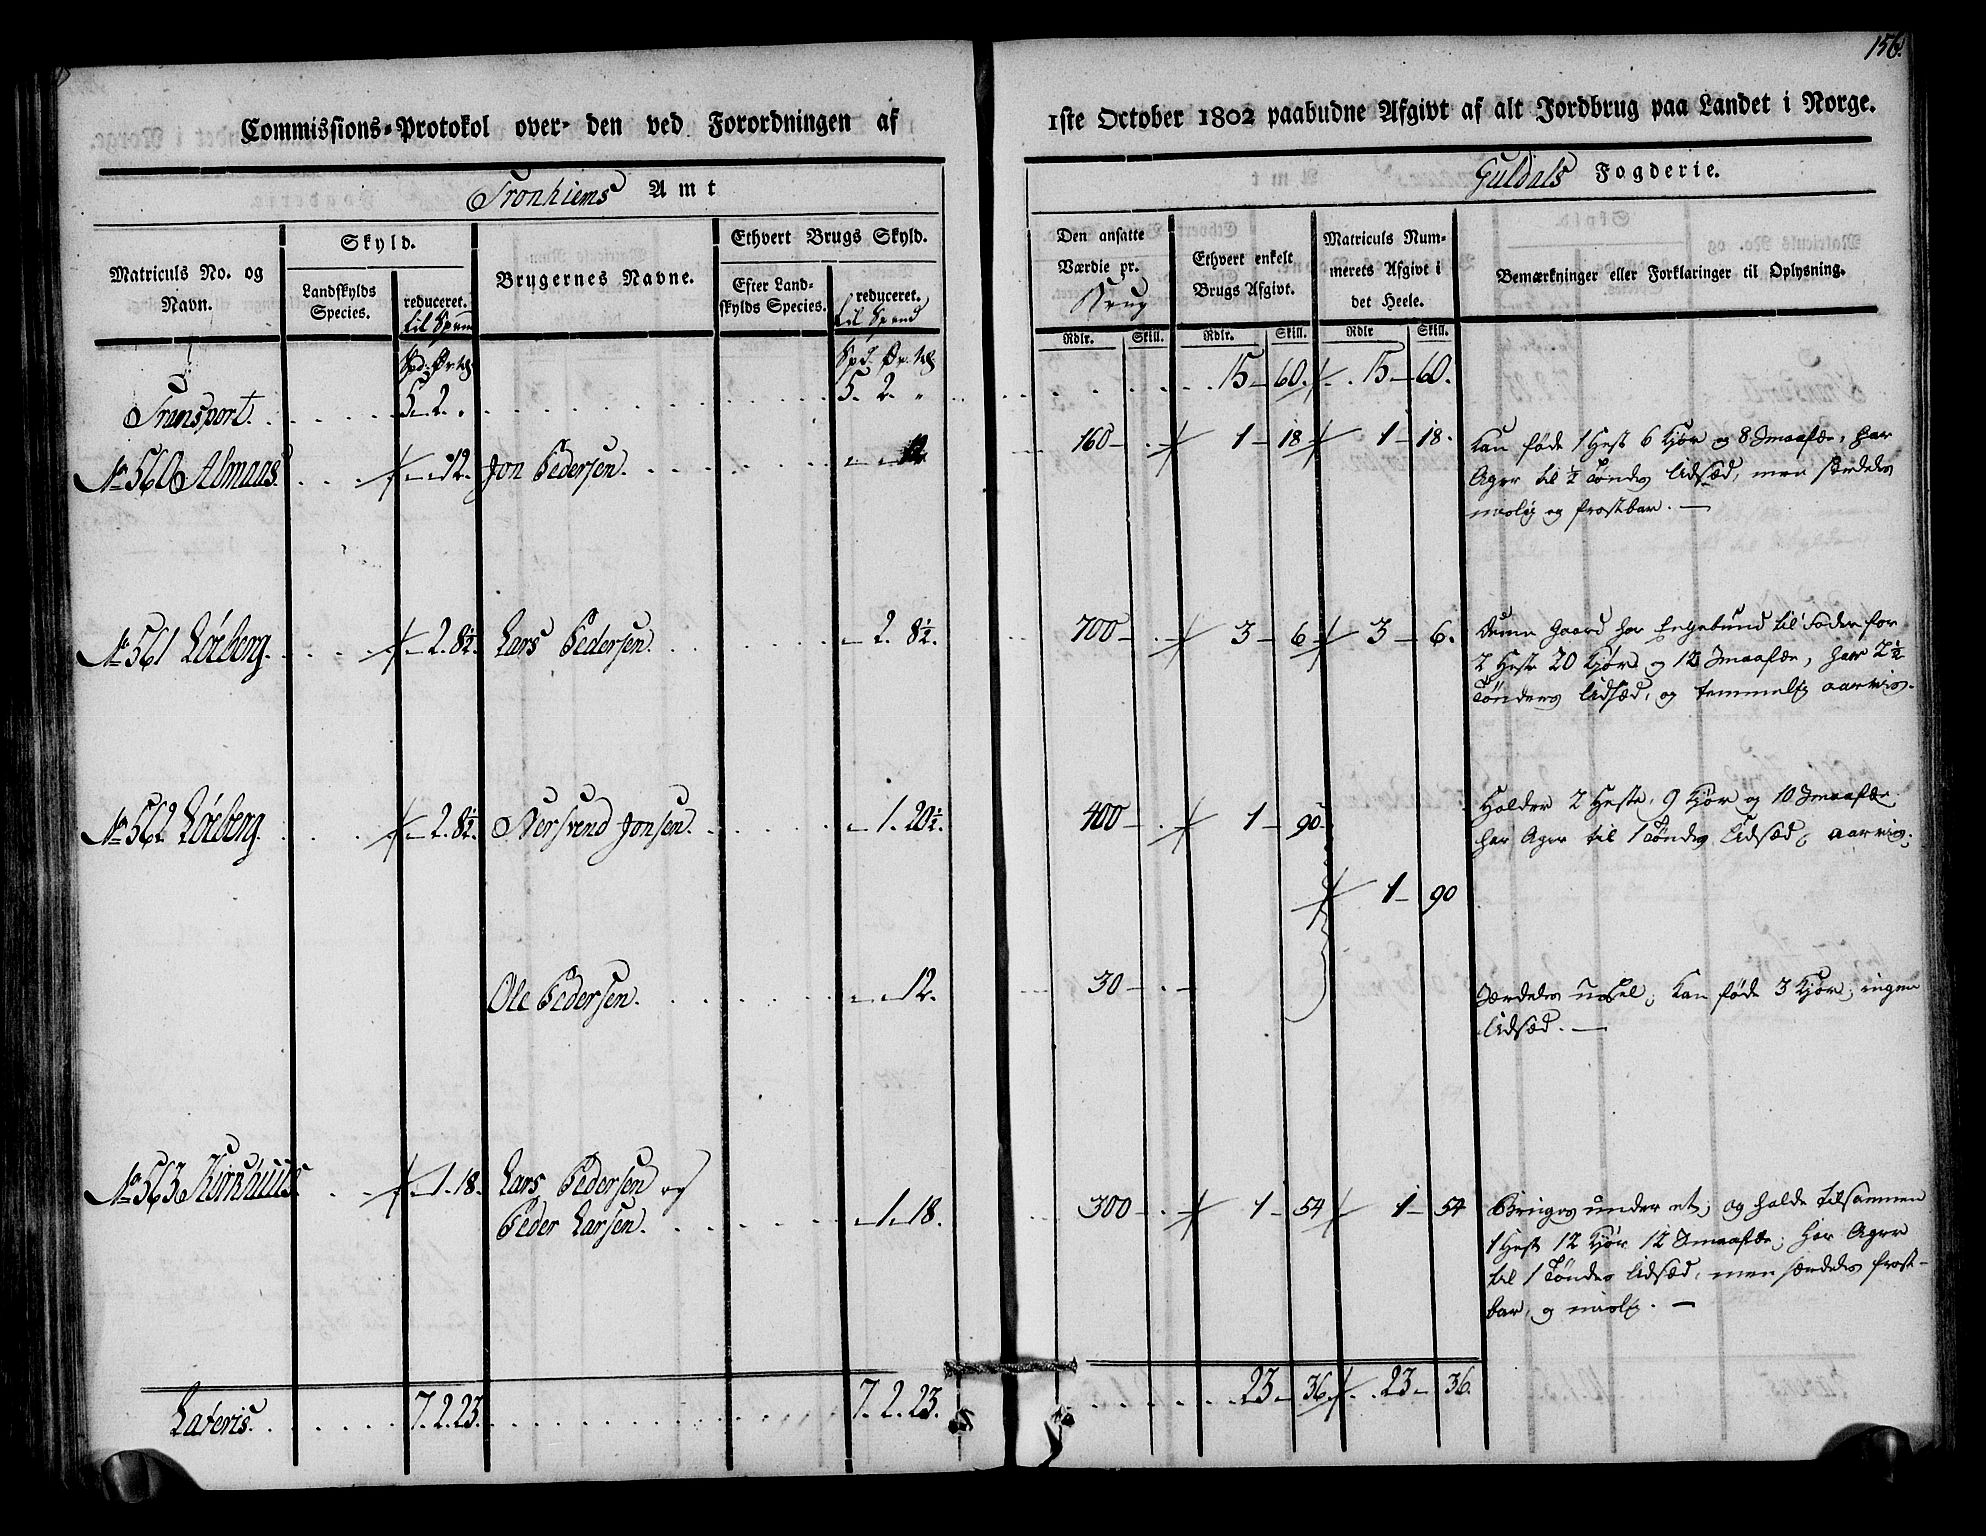 156.
Commissions-Protokol over den ved Forordningen af
1ste October 1802 paabudne Afgivt af alt Jordbrug paa Landet i Norge.
Tronhiems Amt
Guldals Fogderie.
Matriculs No. og Navn.
Skyld.
Landskylds Species.
reduceret.
til Spand
Brugernes Navne.
Ethvert Brugs Skyld.
Efter Landskylds Species.
reduceret.
til Spand
Den ansatte Værdie pr.
Brug
Ethvert enkelt Brugs Afgivt.
Matriculs Nummerets Afgivt i det Heele.
Bemærkninger eller Forklaringer til Oplysning.
Rdlr. Skill. Rdlr. Skill. Rdlr Skill.
Transport. 5. 2. „ 5. 2. „ 15 – 60. 15 – 60.
No 560 Almaas. 12. Jon Pedersen. 12 160 – 1 – 18 1 – 18. Kan føde 1 Hest 6 Kjør og 8 Smaafæ, har
Ager til ½ Tøndes Udsæd, men særdeles
mislig og frostbar. —
No 561 Løeberg. 2. 8½. Lars Pedersen. 2. 8½. 700 – 3 – 6 3 – 6. Denne Gaard har Engebund til Foder for
2 Heste 20 Kjør og 12 Smaafæ, har 2½
Tønders Udsæd, og temmelig aarvis.
No 562 Løeberg. 2. 8½. Nersvend Jonsen. 1. 20½. 400 – 1 – 90. Holder 2 Heste, 9 Kjør og 10 Smaafæ
har Ager til 1 Tøndes Udsæd, aarvis.
1 – 90
Ole Pedersen. 12. 30 – Særdeles ussel; kan føde 3 Kjør, ingen
Udsæd. —
No 563 Kirkhuus. 1. 18. Lars Pedersen og
Peder Larsen. 1. 18. 300 – 1 – 54 1 – 54 Bruges under et; og holde tilsammen
1 Hest 12 Kjør 12 Smaafæ; har Ager
til 1 Tøndes Udsæd, men særdeles frost-
bar, og mislig. —
Lateris. 7. 2. 23. 7. 2. 23. 23 – 36 23 – 36.